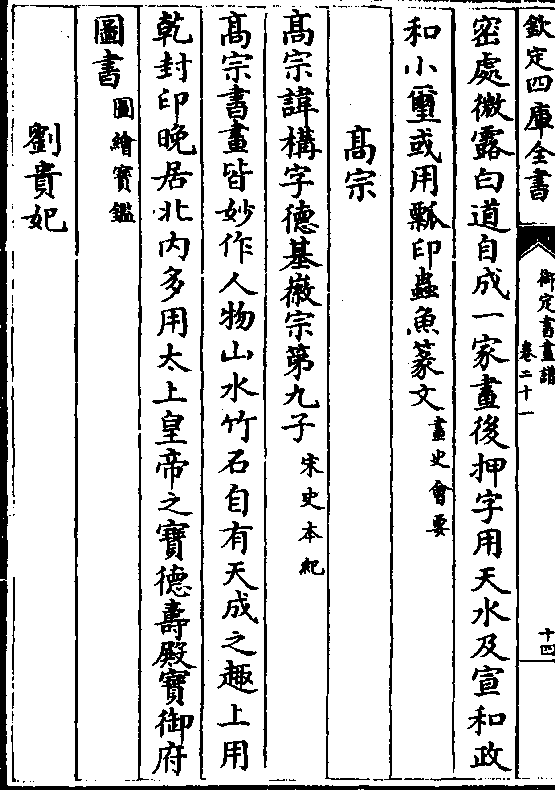 欽定四庫全書
御定書畫譜
卷二十一
十四
密處微露白道自成一家畫後押字用天水及宣和政
和小璽或用瓢印蟲魚篆文畫史會要
髙宗
髙宗諱構字德基徽宗第九子宋史本紀
髙宗書畫皆妙作人物山水竹石自有天成之趣上用
乾封印晚居北内多用太上皇帝之寶德壽殿寶御府
圖書圖繪寶鑑
劉貴妃